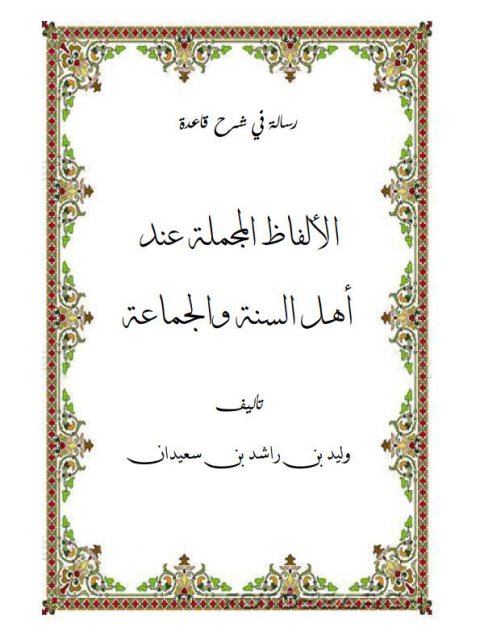 رسالة في شرح قاعدة
الألفاظ المجملة عند
أهل السنة والجماعة
تاليف
وليد بن راشد بن سعيدان